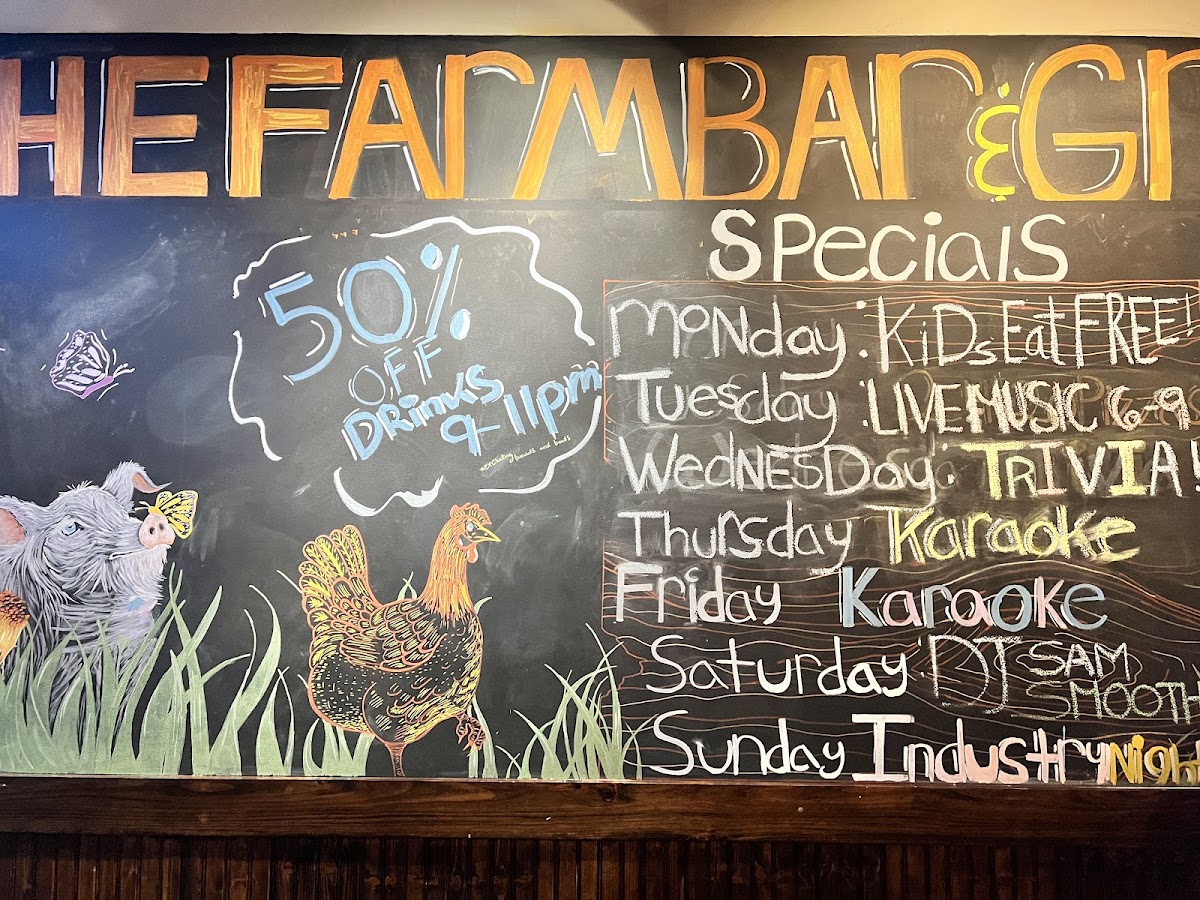 HE FArm BAr & Gr
Specials
50%
OFF
Drinks
9-11pm
Monday: KiDs Eat FREE!
Tuesday: LIVE MUSIC 6-9
WedNESDay: TRIVIA!
Thursday Karaoke
Friday Karaoke
Saturday: DJ SAM
SMOOTH
Sunday Industry Night